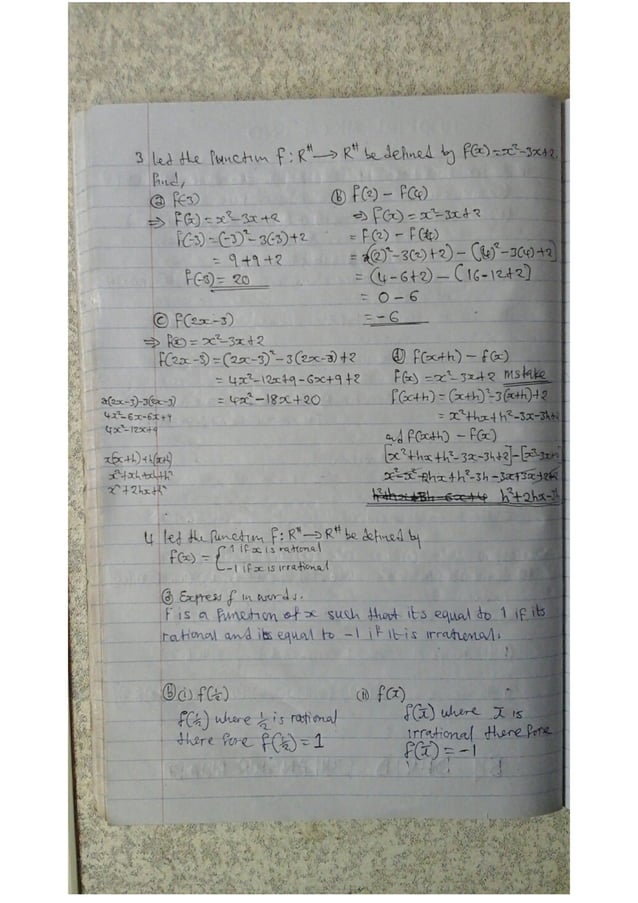 3 Let the function f: R# → R# be defined by f(x) = x²-3x+2.
Find,
(a) f(-3)
⇒ f(x) = x²-3x+2
f(-3) = (-3)²-3(-3)+2
= 9+9+2
f(-3) = 20
(b) f(2) - f(4)
⇒ f(x) = x²-3x+2
= f(2) - f(4)
= [(2)²-3(2)+2) - [(4)²-3(4)+2]
= (4-6+2) - (16-12+2]
= 0-6
= -6
(c) f(2x-3)
⇒ f(x) = x²-3x+2
f(2x-3) = (2x-3)²-3(2x-3)+2
= 4x²-12x+9-6x+9+2
= 4x²-18x+20
2x(2x-3)-3(2x-3)
4x²-6x-6x+9
4x²-12x+9
x(x+h)+h(x+h)
x²+xh+xh+h²
x²+2hx+h²
(d) f(x+h) - f(x)
f(x) = x²-3x+2 mstake
f(x+h) = (x+h)²-3(x+h)+2
= x²+hx+h²-3x-3h+2
and f(x+h) - f(x)
[x²+hx+h²-3x-3h+2]-[x²-3x+2]
x²-x²+2hx+h²-3h-3x+3x+2
h²+2hx-3h
4 Let the function f: R# → R# be defined by
f(x) = { 1 if x is rational
-1 if x is irrational
(a) Express f in words.
f is a function of x such that its equal to 1 if its
rational and its equal to -1 if it is irrational.
(b) (i) f(½)
f(½) where ½ is rational
there fore f(½) = 1
(ii) f(π)
f(π) where π is
irrational there fore
f(π) = -1